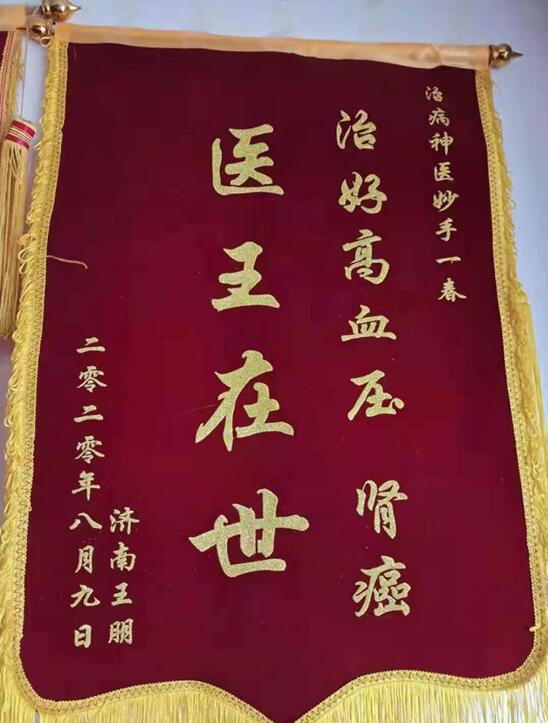 治病神医妙手一春
治好高血压 肾癌
医王在世
济南王朋
二零二零年八月九日